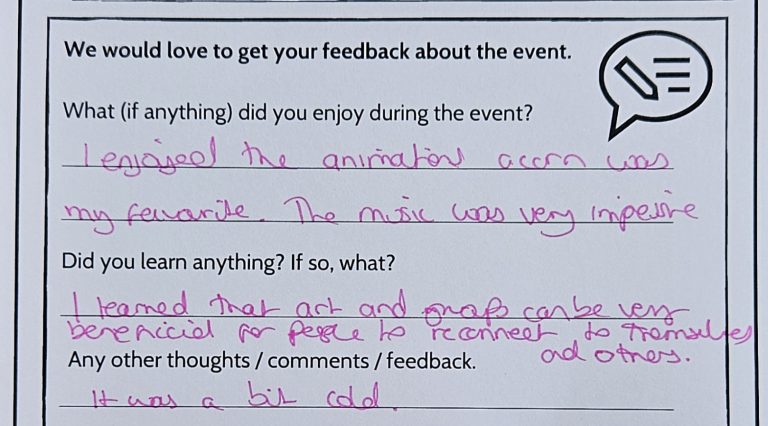 We would love to get your feedback about the event.
What (if anything) did you enjoy during the event?
I enjoyed the animation acorn was
my favourite. The music was very impessive
Did you learn anything? If so, what?
I learned that art and can be very
beneficial for people to reconnect to themselves
and others.
Any other thoughts / comments / feedback.
It was a bit cold.